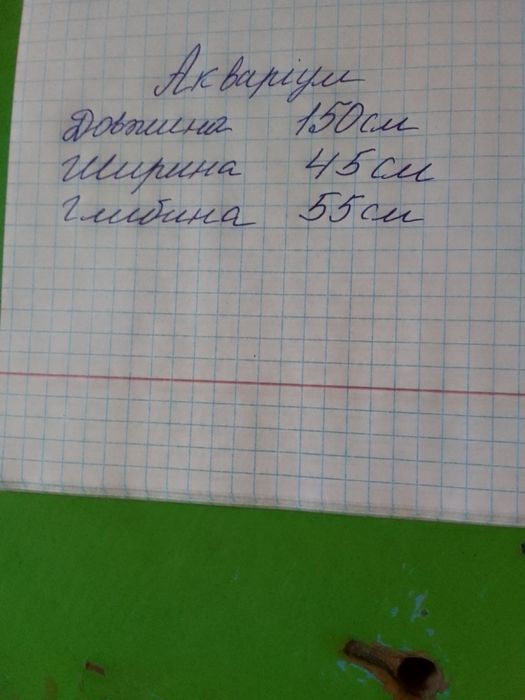 Акваріум
Довжина 150см
Ширина 45см
Глибина 55см